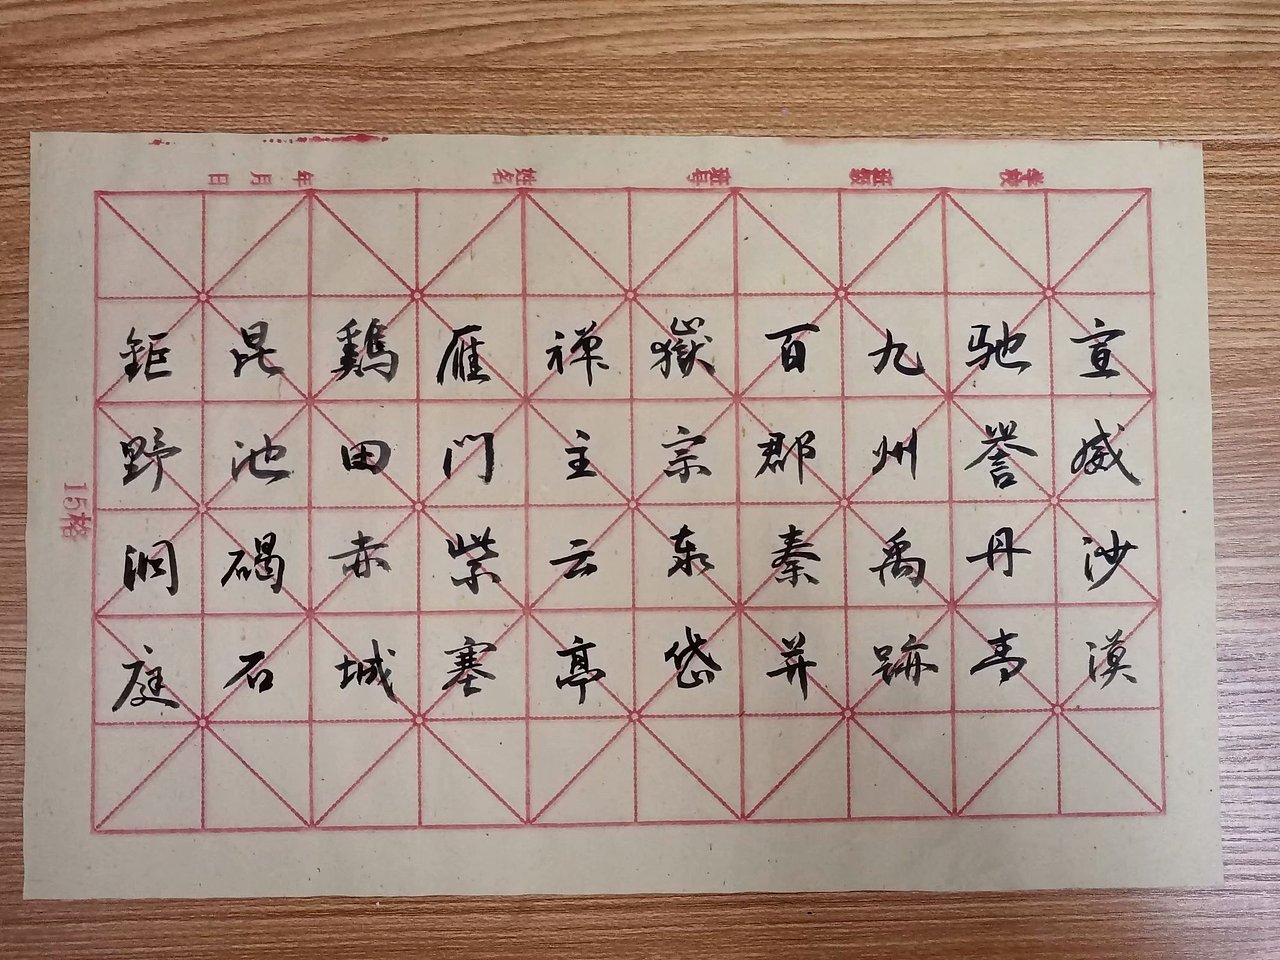 学校 班级 姓名 年 月 日
宣威沙漠
驰誉丹青
九州禹跡
百郡秦并
嶽宗泰岱
禅主云亭
雁门紫塞
鷄田赤城
昆池碣石
鉅野洞庭
15格